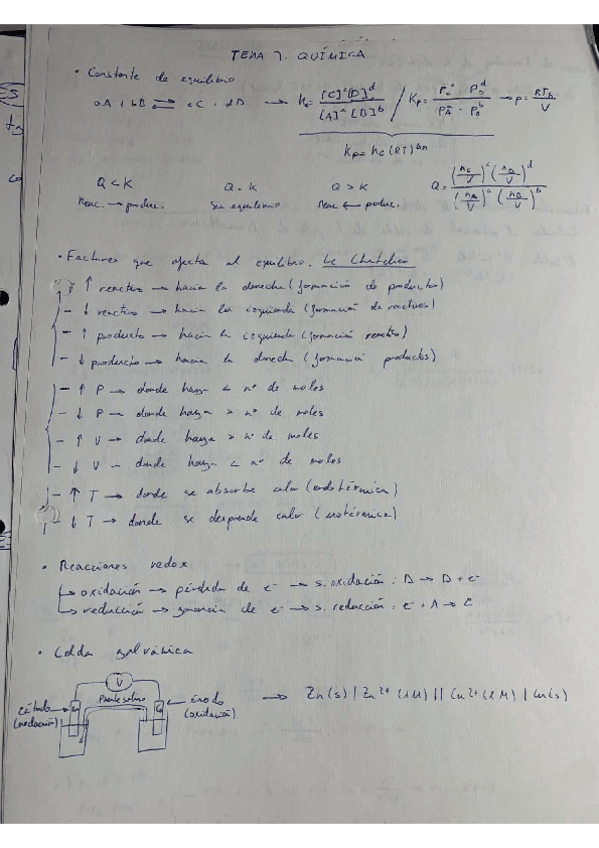 TEMA 7. QUÍMICA
• Constante de equilibrio
aA + bB ⇌ cC + dD → Kc = [C]^c [D]^d / [A]^a [B]^b / Kp = Pc^c · PD^d / PA^a · PB^b → P = RTn / V
Kp = Kc (RT)^Δn
Q < K Q = K Q > K Q = (nC/V)^c (nD/V)^d / (nA/V)^a (nB/V)^b
Reac. → produc. Sin equilibrio Reac ← produc.
• Factores que afecta al equilibrio. Le Chatelier
- ↑ reactivo → hacia la derecha (formación de productos)
- ↓ reactivo → hacia la izquierda (formación de reactivos)
- ↑ producto → hacia la izquierda (formación reactivo)
- ↓ producto → hacia la derecha (formación productos)
- ↑ P → donde haya < nº de moles
- ↓ P → donde haya > nº de moles
- ↑ V → donde haya > nº de moles
- ↓ V - donde haya < nº de moles
- ↑ T → donde se absorbe calor (endotérmica)
- ↓ T → donde se desprende calor (exotérmica)
• Reacciones redox
→ oxidación → pérdida de e- → s. oxidación: B → D + e-
→ reducción → ganancia de e- → s. reducción: e- + A → C
• Celda galvánica
V
Puente salino
cátodo (reducción)
ánodo (oxidación)
→ Zn(s) | Zn²⁺ (1M) || Cu²⁺ (1M) | Cu(s)